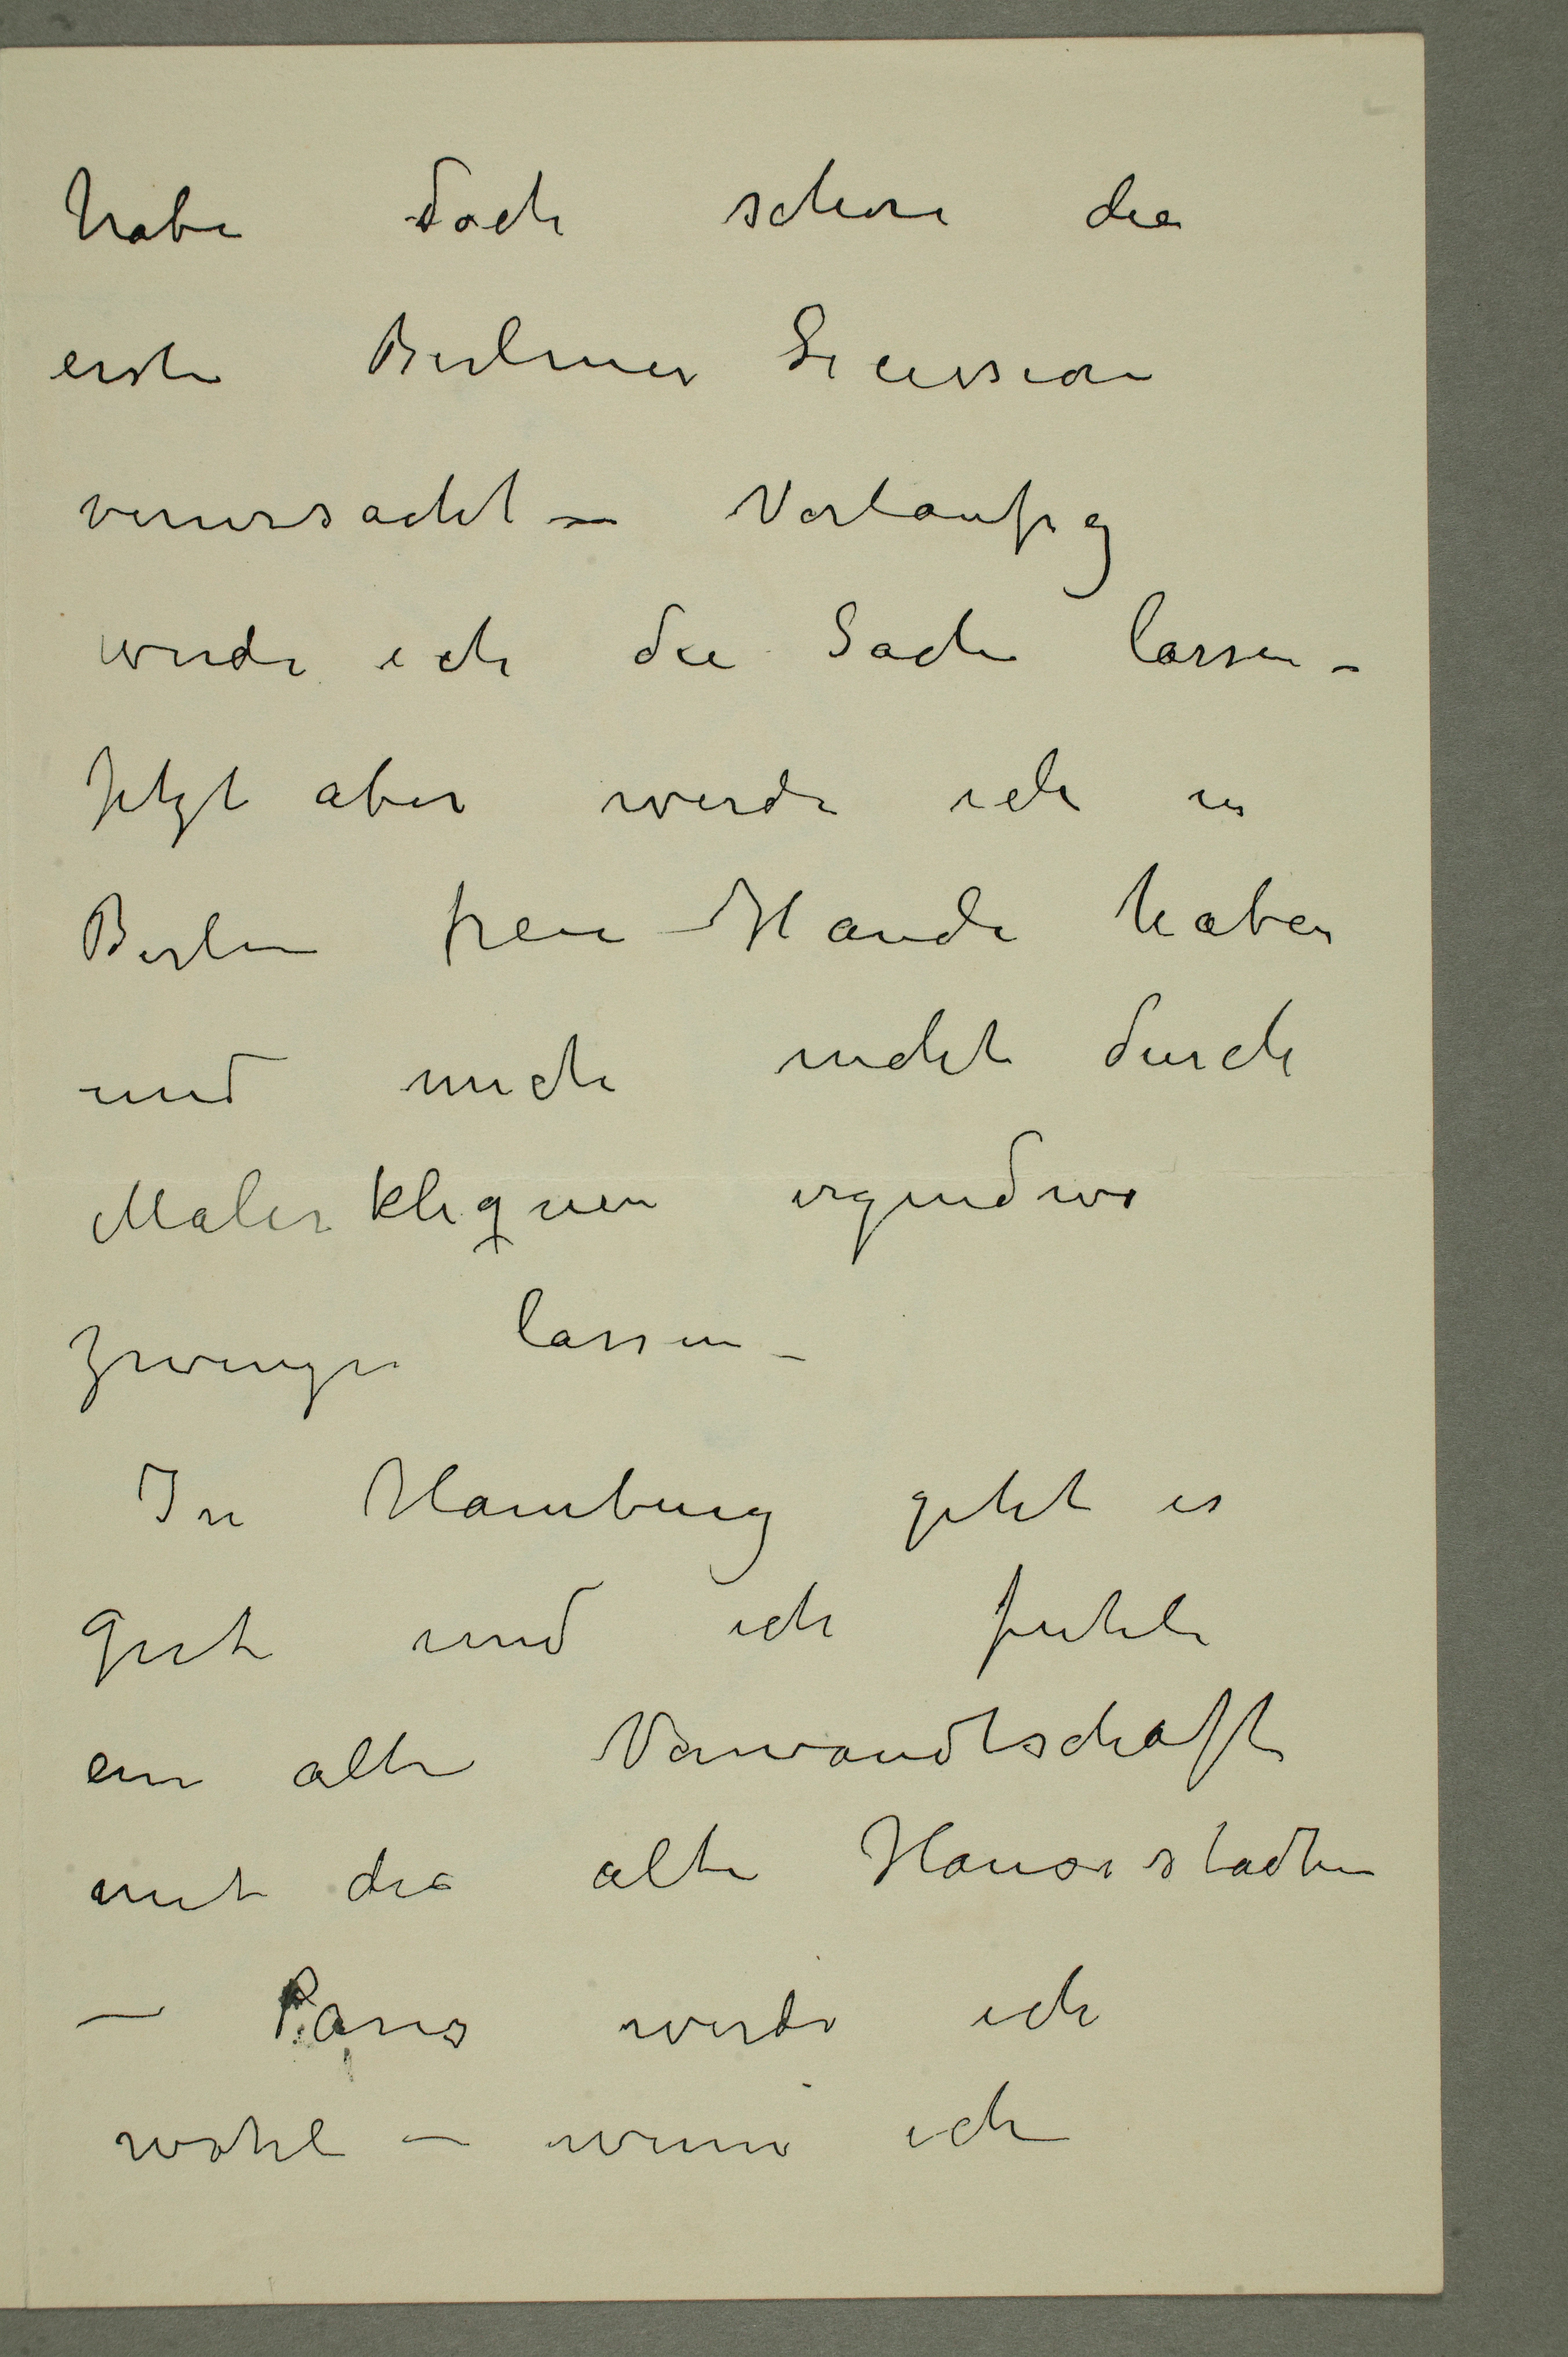 habe doch schon die
erste Berliner Secession
verursacht — Vorlaufig
werde ich die Sache lassen –
Jetzt aber werde ich in
Berlin freie Hande haben
und mich nicht durch
Malerkliquen irgendwo
zwingen lassen –
In Hamburg geht es
gut und ich fuhle
eine alte Verwandtschaft
mit die alte Hansestadten
— Paris werde ich
wohl — wenn ich